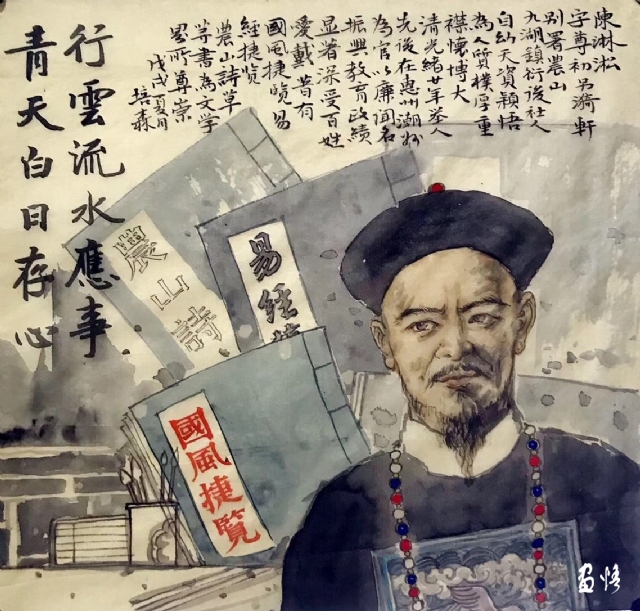 陳淋淞
字尊初号漪軒
别署農山
九湖鎮衍後社人
自幼天資穎悟
為人質樸厚重
襟懷博大
清光緒廿年举人
先後在惠州潮州
為官以廉闻名
振興教育政績
显著深受百姓
愛戴著有
國風捷覽易
經捷覽
農山詩草
等書為文学
界所尊崇
戊戌夏月
培森
行雲流水應事
青天白日存心
農山詩
易經
國風捷覽